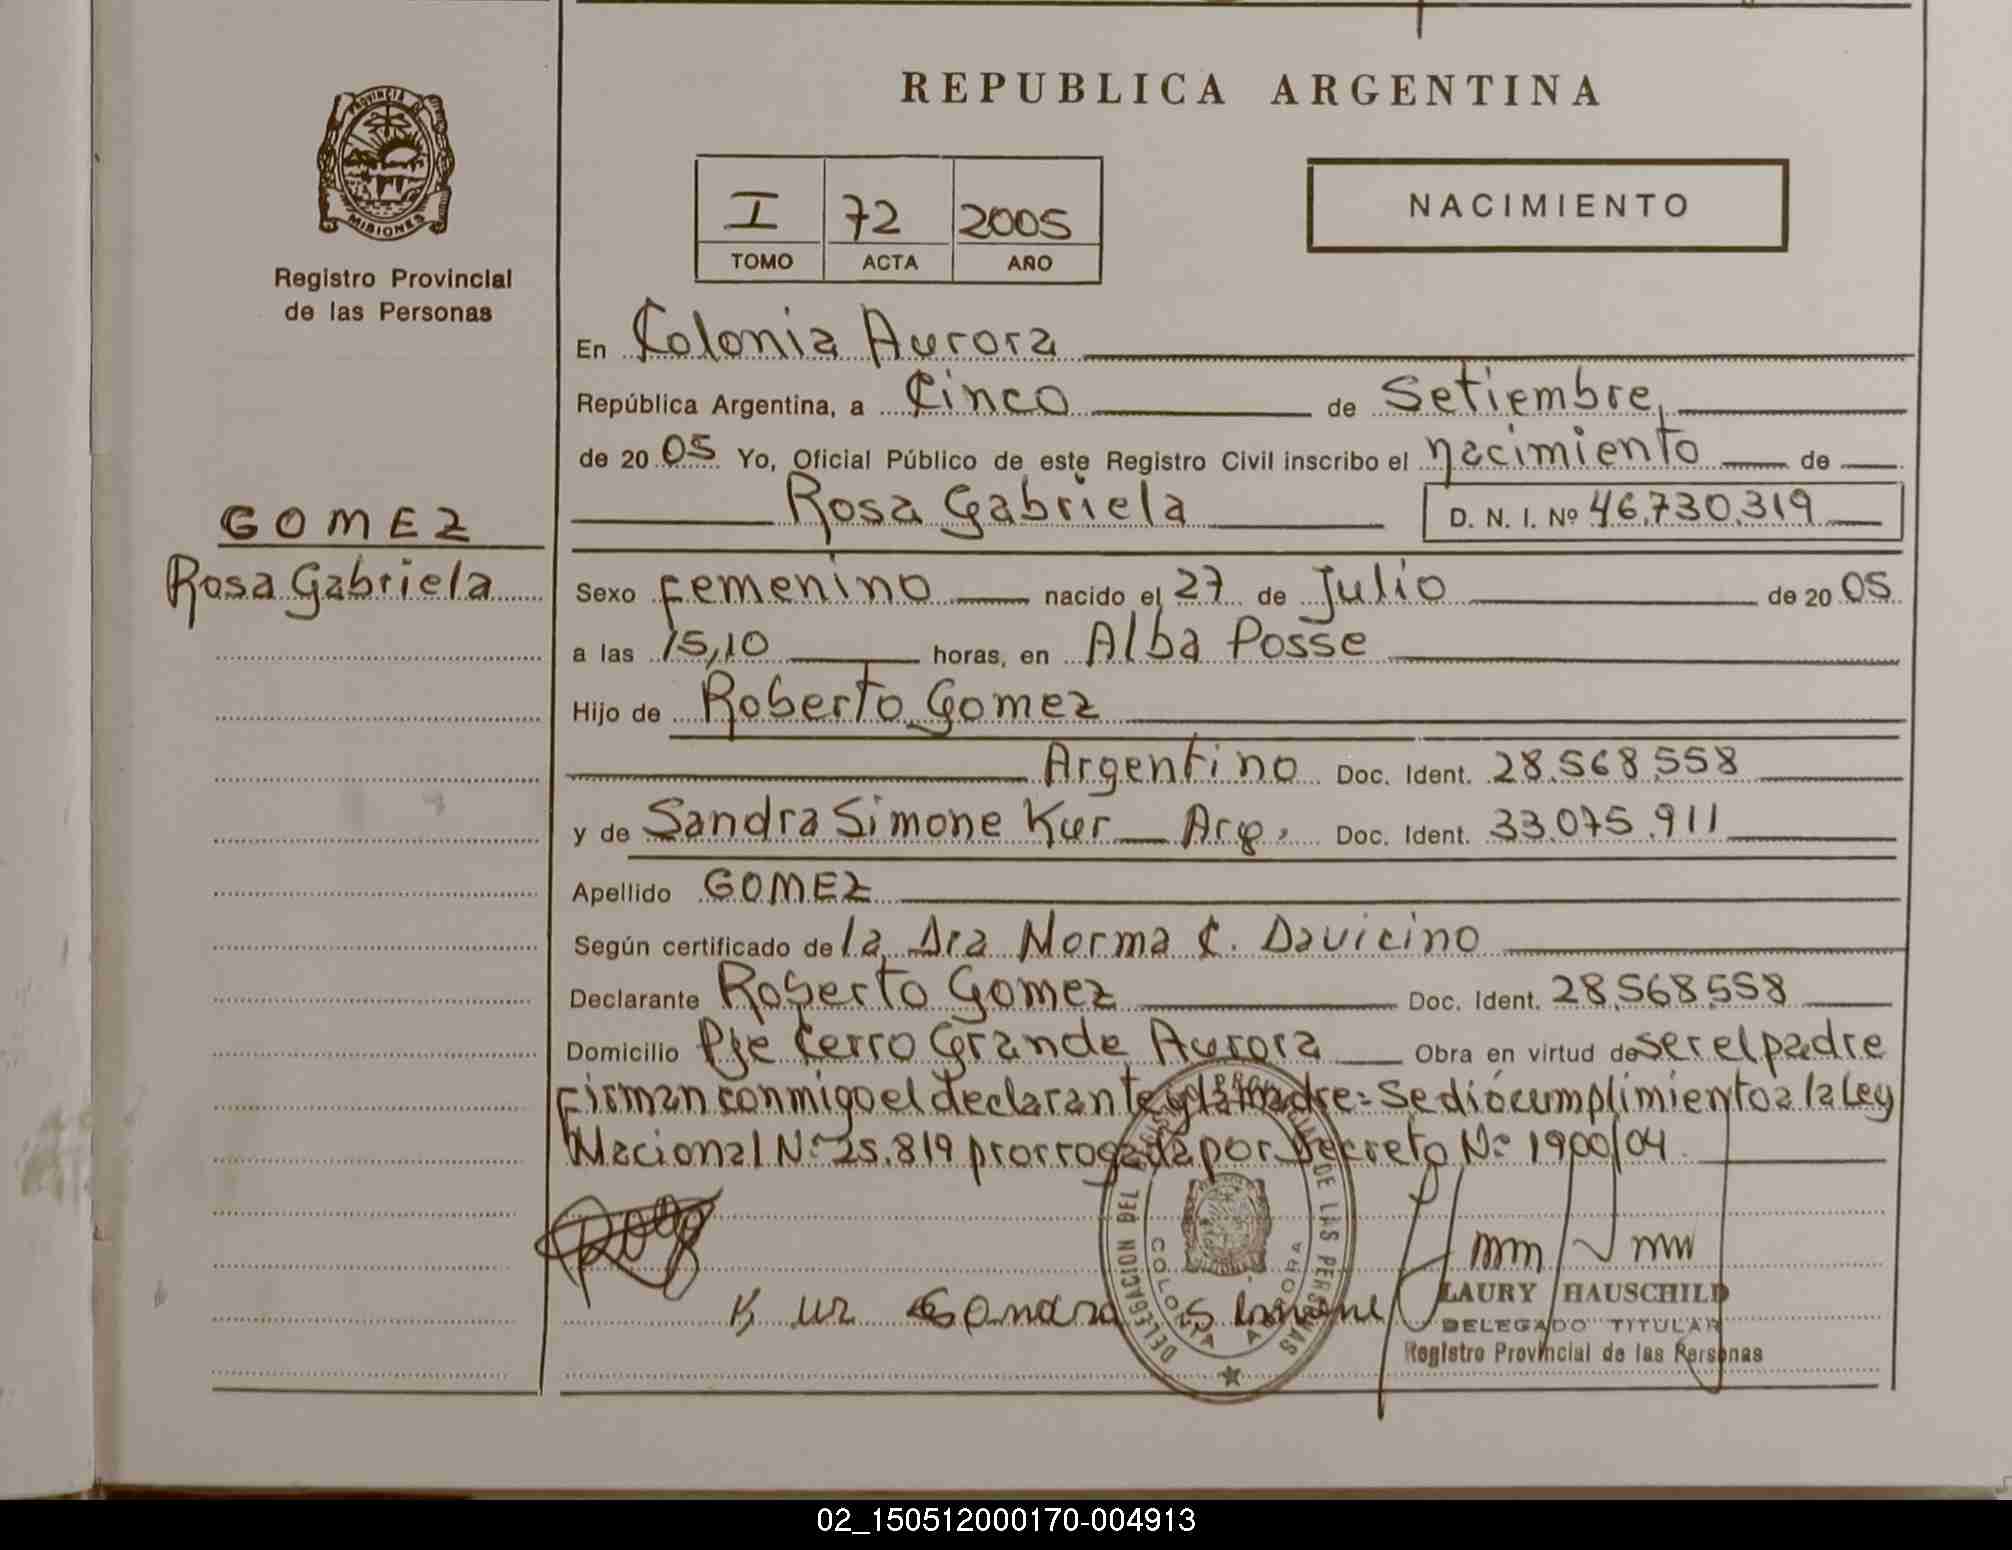 REPUBLICA ARGENTINA
PROVINCIA DE
MISIONES
Registro Provincial
de las Personas
I 72 2005
TOMO ACTA AÑO
NACIMIENTO
En Colonia Aurora
República Argentina, a Cinco de Setiembre
de 2005 Yo, Oficial Público de este Registro Civil inscribo el nacimiento de
Rosa Gabriela D. N. I. Nº 46.730.319
GOMEZ
Rosa Gabriela
Sexo Femenino nacido el 27 de Julio de 2005
a las 15,10 horas, en Alba Posse
Hijo de Roberto Gomez
Argentino Doc. Ident. 28.568.558
y de Sandra Simone Kur Arg. Doc. Ident. 33.075.911
Apellido GOMEZ
Según certificado de la Dra Norma C. Davicino
Declarante Roberto Gomez Doc. Ident. 28.568.558
Domicilio Pje Cerro Grande Aurora Obra en virtud de ser el padre
Firman conmigo el declarante y la madre= Se dió cumplimiento a la Ley
Nacional Nº 25.819 prorrogada por Decreto Nº 1900/04
Kur Sandra Simone
DELEGACION DEL REGISTRO PROVINCIAL DE LAS PERSONAS
COLONIA AURORA
LAURY HAUSCHILD
DELEGADO TITULAR
Registro Provincial de las Personas
02_150512000170-004913